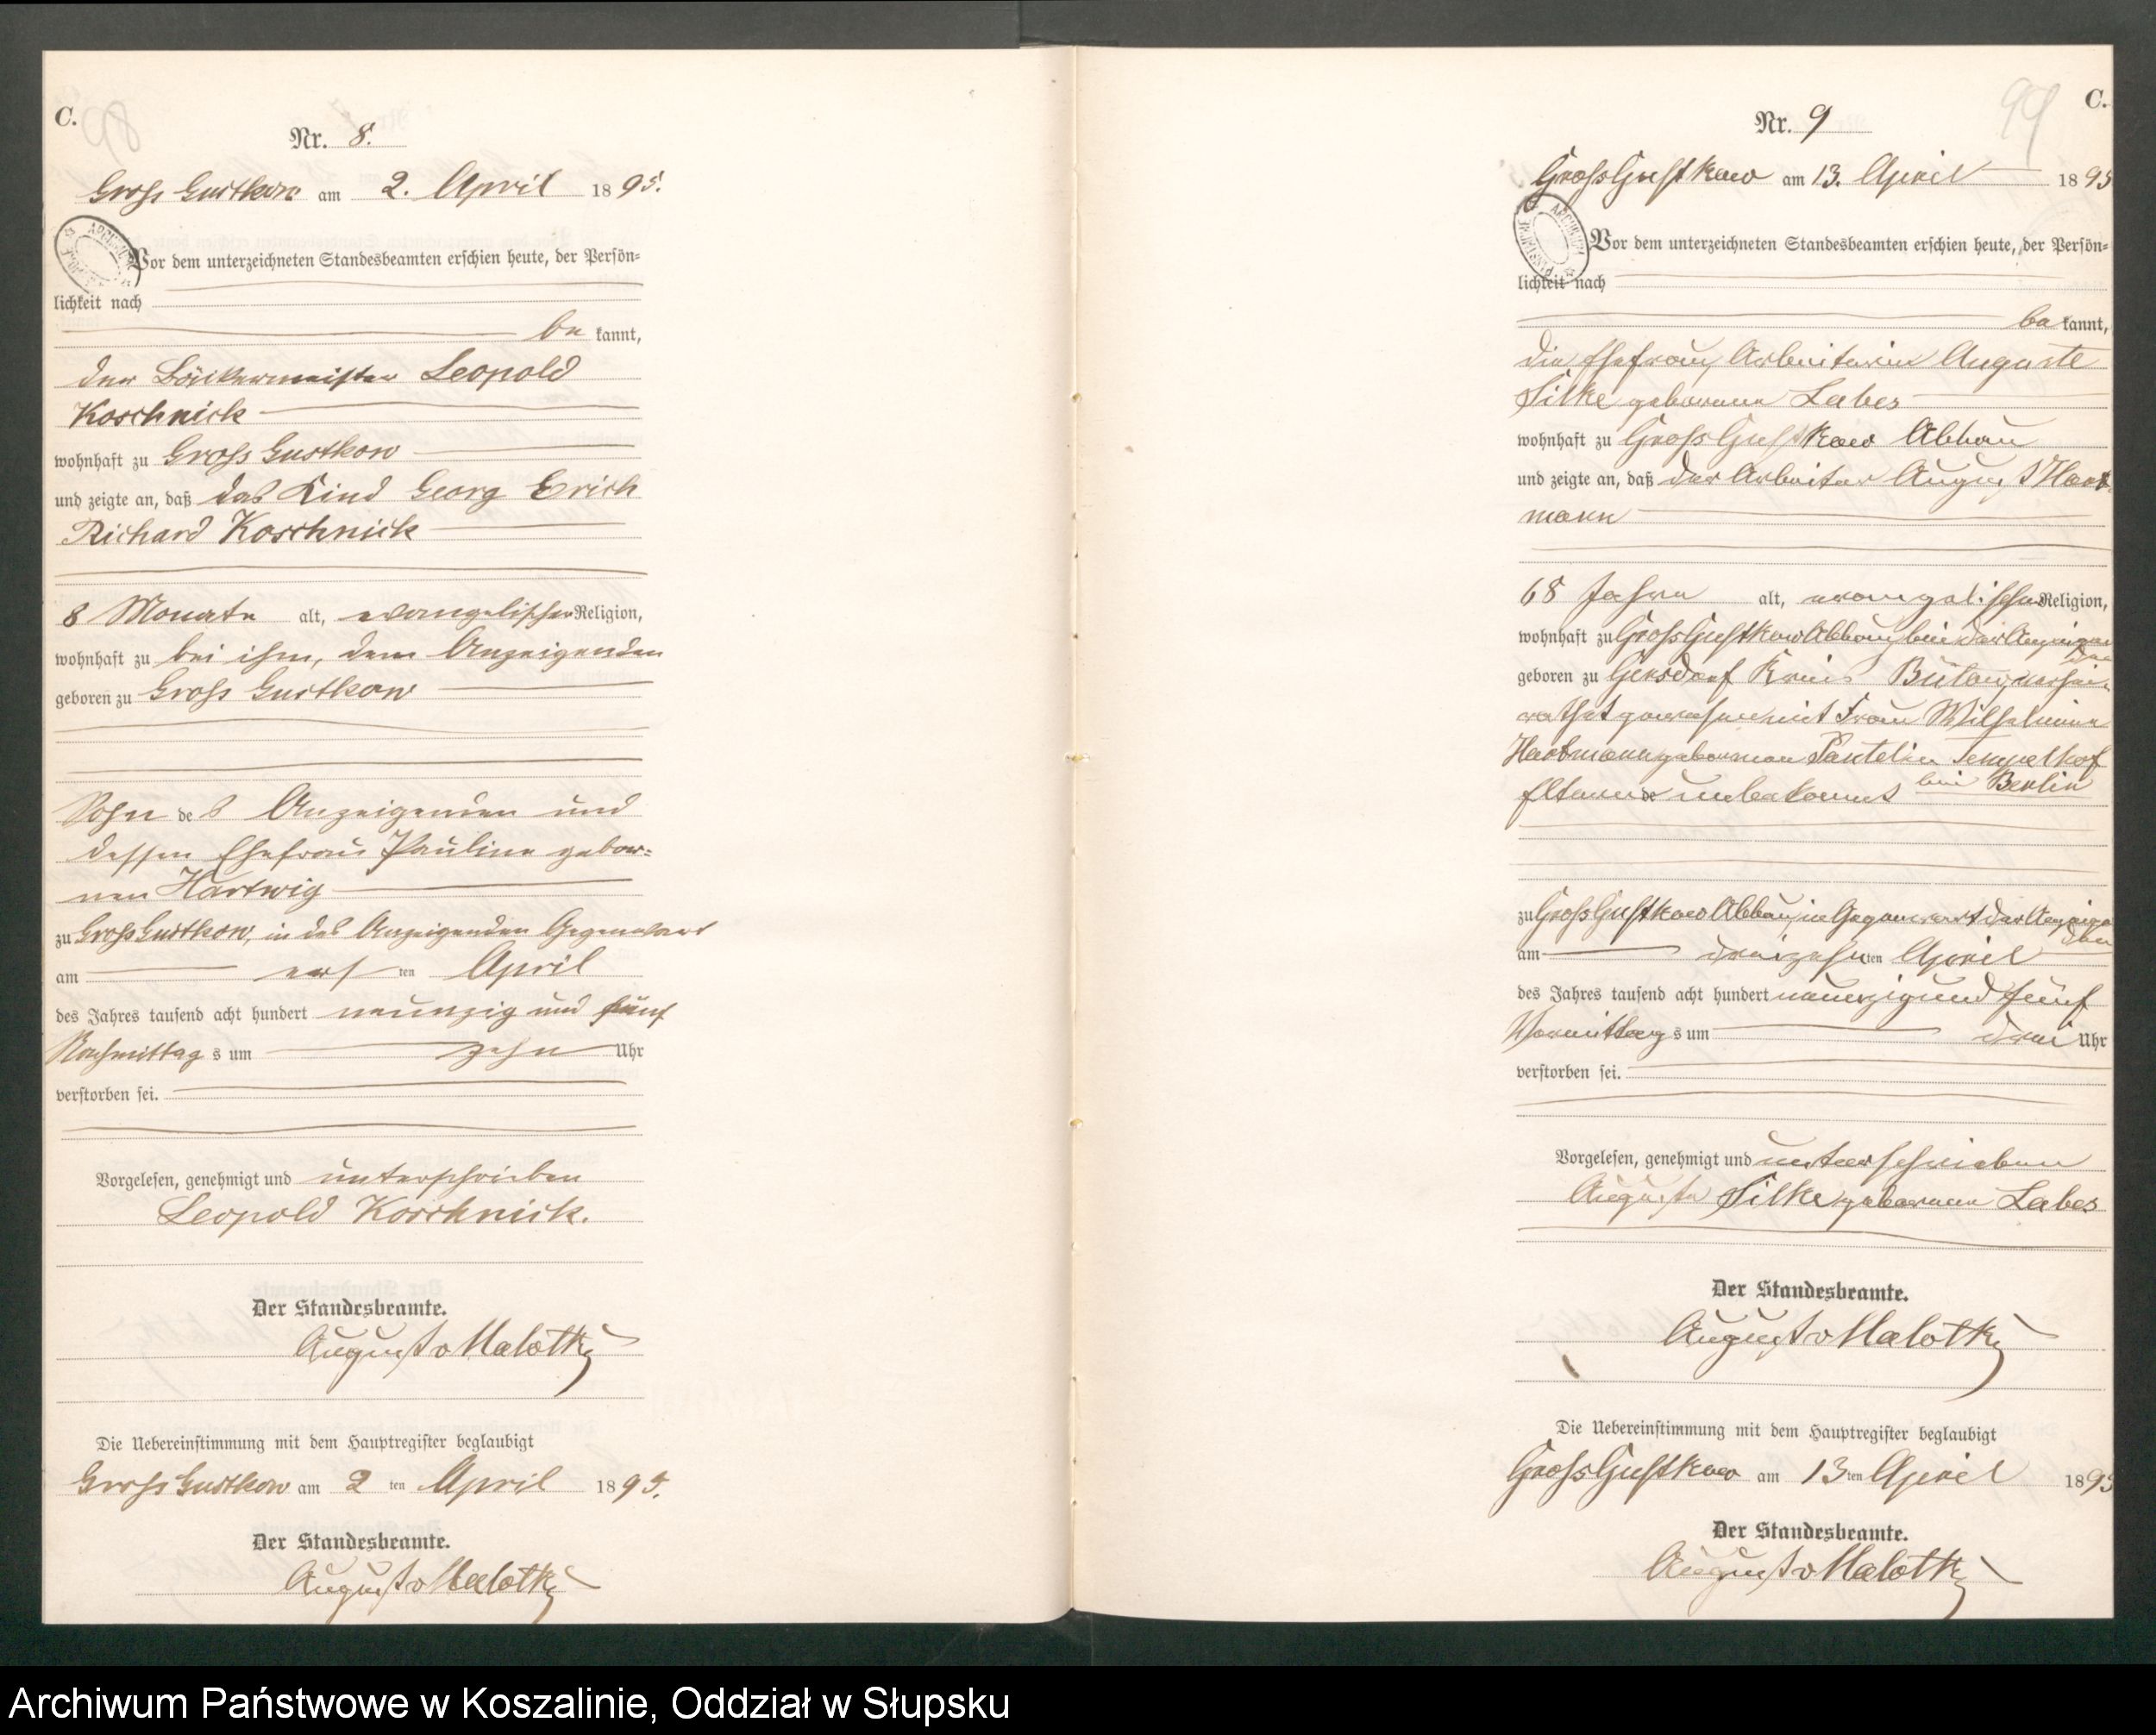 C.
Nr. 8.
Gross Gustkow am 2. April 1895.
Vor dem unterzeichneten Standesbeamten erschien heute, der Persön=
lichkeit nach
be kannt,
der Bäckermeister Leopold
Koschnick
wohnhaft zu Gross Gustkow
und zeigte an, daß das Kind Georg Erich
Richard Koschnick
8 Monate alt, evangelischer Religion,
wohnhaft zu bei ihm, dem Anzeigenden
geboren zu Gross Gustkow
Sohn des Anzeigenden und
dessen Ehefrau Pauline gebor=
nen Hartwig
zu Gross Gustkow, in des Anzeigenden Gegenwart
am ersten April
des Jahres tausend acht hundert neunzig und fünf
Nachmittags um zehn Uhr
verstorben sei.
Vorgelesen, genehmigt und unterschrieben
Leopold Koschnick.
Der Standesbeamte.
August v Malottky
Die Uebereinstimmung mit dem Hauptregister beglaubigt
Gross Gustkow am 2 ten April 1895.
Der Standesbeamte.
August v Malottky
99
C.
Nr. 9
Gross Gustkow am 13. April 1895
Vor dem unterzeichneten Standesbeamten erschien heute, der Persön=
lichkeit nach
be kannt,
die Ehefrau, Arbeiterin Auguste
Silke geborene Labes
wohnhaft zu Gross Gustkow Abbau
und zeigte an, daß der Arbeiter August Hart
mann
68 Jahre alt, evangelischer Religion,
wohnhaft zu Gross Gustkow Abbau, bei der Anzeigen
den
geboren zu Gersdorf Kreis Bütow, verhei-
rathet gewesen mit Frau Wilhelmine
Hartmann geborenen Pantelin Tempelhof
bei Berlin
Eltern unbekannt
zu Gross Gustkow Abbau, in Gegenwart der Anzeige
den
am dreizehnten April
des Jahres tausend acht hundert neunzig und fünf
Vormittags um drei Uhr
verstorben sei.
Vorgelesen, genehmigt und unterschrieben
Auguste Silke geborene Labes
Der Standesbeamte.
August v Malottky
Die Uebereinstimmung mit dem Hauptregister beglaubigt
Gross Gustkow am 13 ten April 1895
Der Standesbeamte.
August v Malottky
Archiwum Państwowe w Koszalinie, Oddział w Słupsku